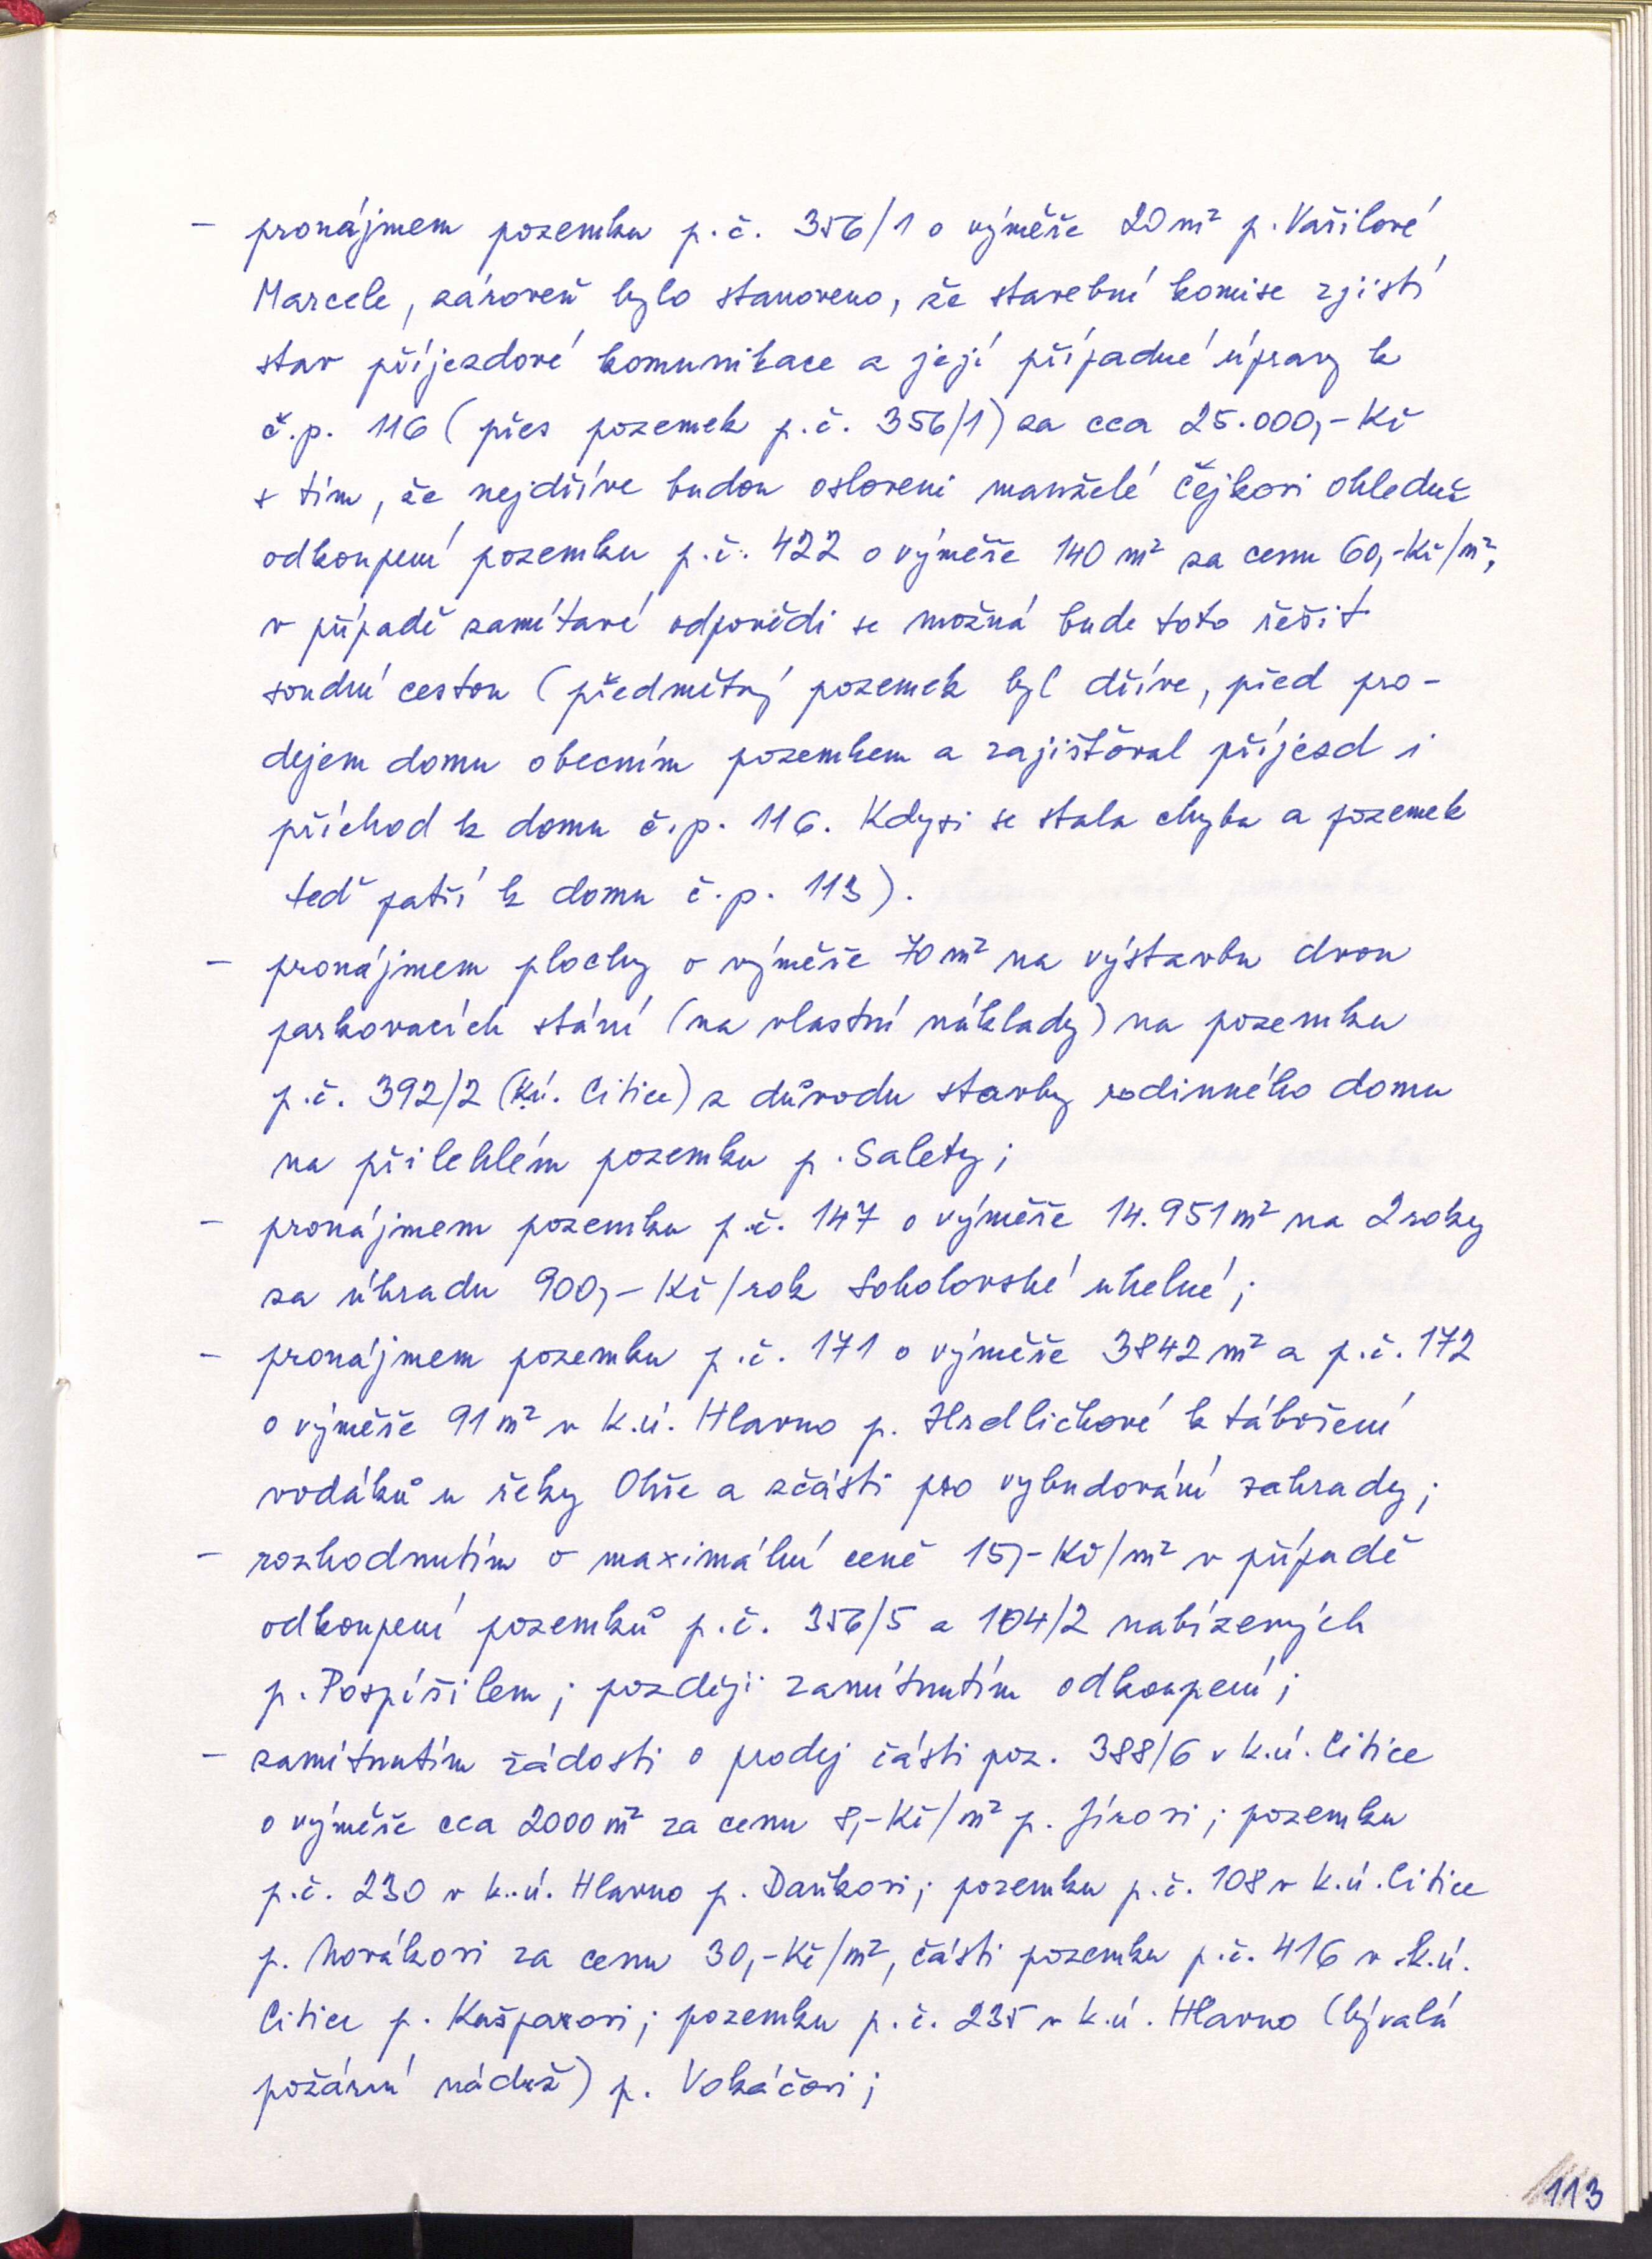 - pronájmem pozemku p.č. 356/1 o výměře 20 m² p. Vašilové
Marcele, zároveň bylo stanoveno, že stavební komise zjistí
stav příjezdové komunikace a její případné úpravy k
č.p. 116 (přes pozemek p.č. 356/1) za cca 25.000,- Kč
s tím, že nejdříve budou osloveni manželé Čejkovi ohledně
odkoupení pozemku p.č. 422 o výměře 140 m² za cenu 60,-Kč/m²,
v případě zamítavé odpovědi se možná bude toto řešit
soudní cestou (předmětný pozemek byl dříve, před pro-
dejem domu obecním pozemkem a zajišťoval příjezd i
příchod k domu č.p. 116. Kdysi se stala chyba a pozemek
teď patří k domu č.p. 113).
- pronájmem plochy o výměře 70 m² na výstavbu dvou
parkovacích stání (na vlastní náklady) na pozemku
p.č. 392/2 (k.ú. Citice) z důvodu stavby rodinného domu
na přilehlém pozemku p. Salety;
- pronájmem pozemku p.č. 147 o výměře 14.951 m² na 2 roky
za úhradu 900,- Kč/rok Sokolovské uhelné;
- pronájmem pozemku p.č. 171 o výměře 3842 m² a p.č. 172
o výměře 91 m² v k.ú. Hlavno p. Hrdličkové k táboření
vodáků u řeky Ohře a zčásti pro vybudování zahrady;
- rozhodnutím o maximální ceně 15,- Kč/m² v případě
odkoupení pozemků p.č. 356/5 a 104/2 nabízených
p. Pospíšilem; později zamítnutím odkoupení;
- zamítnutím žádosti o prodej části poz. 388/6 v k.ú. Citice
o výměře cca 2000 m² za cenu 8,-Kč/m² p. Jírovi; pozemku
p.č. 230 v k.ú. Hlavno p. Daňkovi; pozemku p.č. 108 v k.ú. Citice
p. Novákovi za cenu 30,-Kč/m², části pozemku p.č. 416 v k.ú.
Citice p. Kašparovi; pozemku p.č. 235 v k.ú. Hlavno (bývalá
požární nádrž) p. Vokáčovi;
113